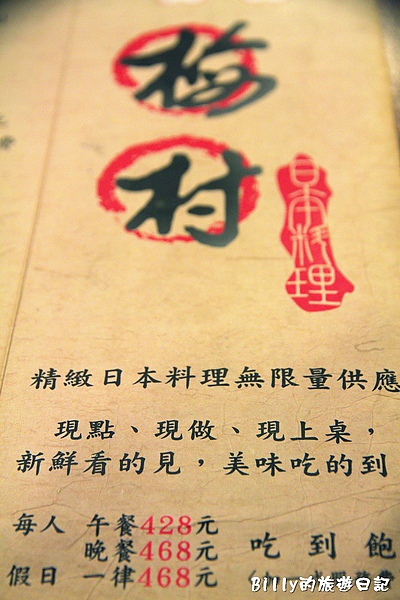 梅村
日本料理
精緻日本料理無限量供應
現點、現做、現上桌，
新鮮看的見，美味吃的到
每人 午餐428元
晚餐468元
假日 一律468元
吃到飽
Billy的旅遊日記